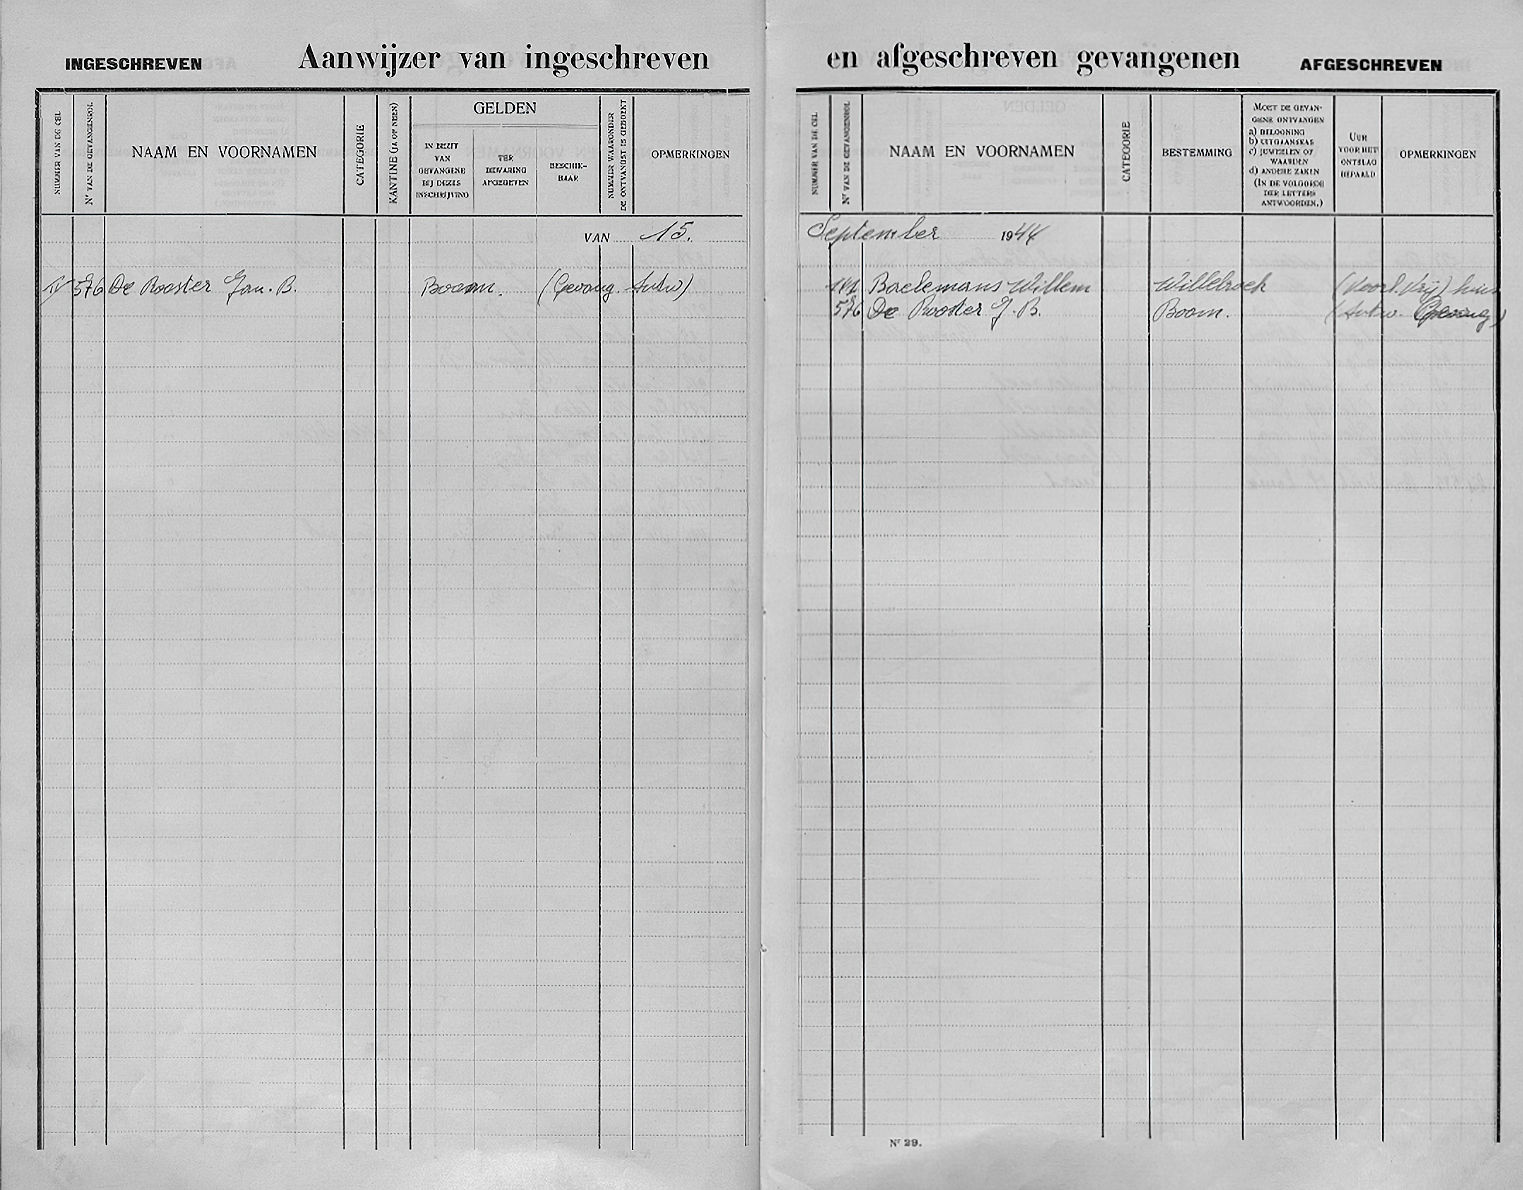 INGESCHREVEN
Aanwijzer van ingeschreven
NUMMER VAN DE CEL
Nr VAN DE GEVANGENROL
NAAM EN VOORNAMEN
CATEGORIE
KANTINE (JA OF NEEN)
GELDEN
IN BEZIT
VAN
GEVANGENE
BIJ DIENS
INSCHRIJVING
TER
BEWARING
AFGEGEVEN
BESCHIK-
BAAR
NUMMER WAARONDER
DE ONTVANGST IS GEBOEKT
OPMERKINGEN
VAN 15.
576 De Rooster Jan. B. Boom. (Gevang. Antw)
en afgeschreven gevangenen
AFGESCHREVEN
NUMMER VAN DE CEL
Nr VAN DE GEVANGENROL
NAAM EN VOORNAMEN
CATEGORIE
BESTEMMING
MOET DE GEVAN-
GENE ONTVANGEN
a) BELOONING
b) UITGAANSKAS
c) JUWEELEN OF
WAARDEN
d) ANDERE ZAKEN
(IN DE VOLGORDE
DER LETTERS
ANTWOORDEN.)
UUR
VOOR HET
ONTSLAG
BEPAALD
OPMERKINGEN
September 1944
Baelemans Willem Willebroek (Voorl. Vrij)
576 De Rooster J. B. Boom. (Antw. Gevang)
Nr 29.